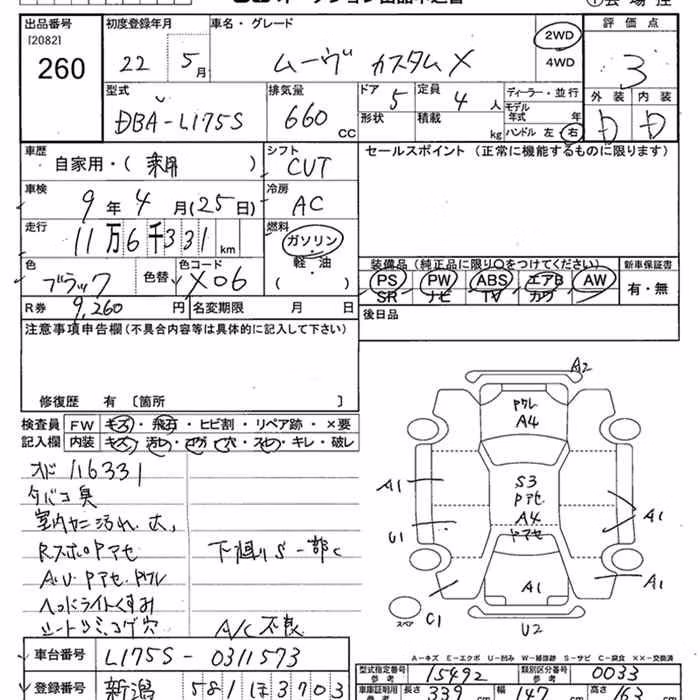 出品番号 初度登録年月 車名・グレード 評価点
[2082]
260 22 5月 ムーヴ カスタムX 2WD 4WD 3
型式 排気量 ドア 定員 ディーラー・並行 外装 内装
DBA-L175S 660 CC 5 4人 モデル年式 年 D D
形状 積載 kg ハンドル 左 右
車歴 シフト セールスポイント(正常に機能するものに限ります)
自家用・(乗用) CVT
車検 冷房
9年4月(25日) AC
走行 燃料
11万6千331km ガソリン
軽・油
色 色替 色コード ( ) 装備品(純正品に限り○をつけてください) 新車保証書
ブラック X06 PS PW ABS エアB AW 有・無
SR ナビ TV カワ
R券 9,260円 名変期限 月 日 後日品
注意事項申告欄(不具合内容等は具体的に記入して下さい)
修復歴 有 〔箇所 〕
検査員 FW キズ・飛石・ヒビ割・リペア跡・×要
記入欄 内装 キズ・汚レ・コゲ・穴・スレ・キレ・破レ
オド116331
タバコ臭
室内ヤニ汚れ大、
RスポPアセ 下廻りS一部C
AU Pアセ、Pワレ
ヘッドライトくすみ
シートシミコゲ穴 A/C不良
A2
Pワレ
A4
A1
S3
Pアセ
A4
Pアセ
A1
U1
A1
A1
C1
スペア
U2
A-キズ E-エクボ U-凹み W-補修跡 S-サビ C-腐食 ××-交換済
車台番号 L175S-0311573 型式指定番号 参考 15492 類別区分番号 参考 0033
登録番号 新潟 581 ほ 3703 車庫証明用 参考 長さ 339 cm 幅 147 cm 高さ 163 cm